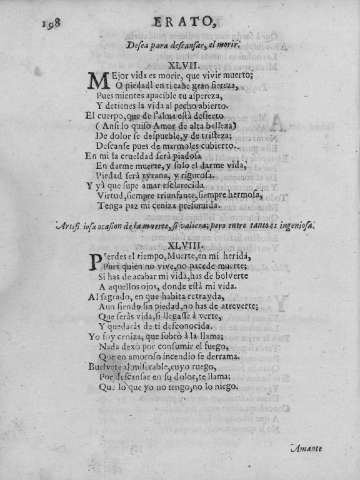 198 ERATO,
Desea para descansar, el morir.
XLVII.
MEjor vida es morir, que vivir muerto;
O piedad! en ti cabe gran fiereza,
Pues mientes apacible tu aspereza,
Y detienes la vida al pecho abierto.
El cuerpo, que de l'alma està desierto
(Ansi lo quiso Amor de alta belleza)
De dolor se despueble, y de tristeza;
Descanse pues de marmoles cubierto.
En mi la crueldad serà piadosa
En darme muerte, y solo el darme vida,
Piedad serà tyrana, y rigurosa.
Y yà que supe amar esclarecida
Virtud, siempre triunfante, siempre hermosa,
Tenga paz mi ceniza presumida.
Artifi iosa ocasion de la muerte, si valiera; pero entre tanto es ingeniosa.
XLVIII.
PIerdes el tiempo, Muerte, en mi herida,
Pues quien no vive, no padece muerte;
Si has de acabar mi vida, has de bolverte
A aquellos ojos, donde està mi vida.
Al sagrado, en que habita retrayda,
Aun siendo sin piedad, no has de atreverte;
Que seràs vida, si llegasse à verte,
Y quedaràs de ti desconocida.
Yo soy ceniza, que sobrò à la llama;
Nada dexò por consumir el fuego,
Que en amoroso incendio se derrama.
Buelvete al miserable, cuyo ruego,
Por descansar en su dolor, te llama;
Que lo que yo no tengo, no lo niego.
Amante